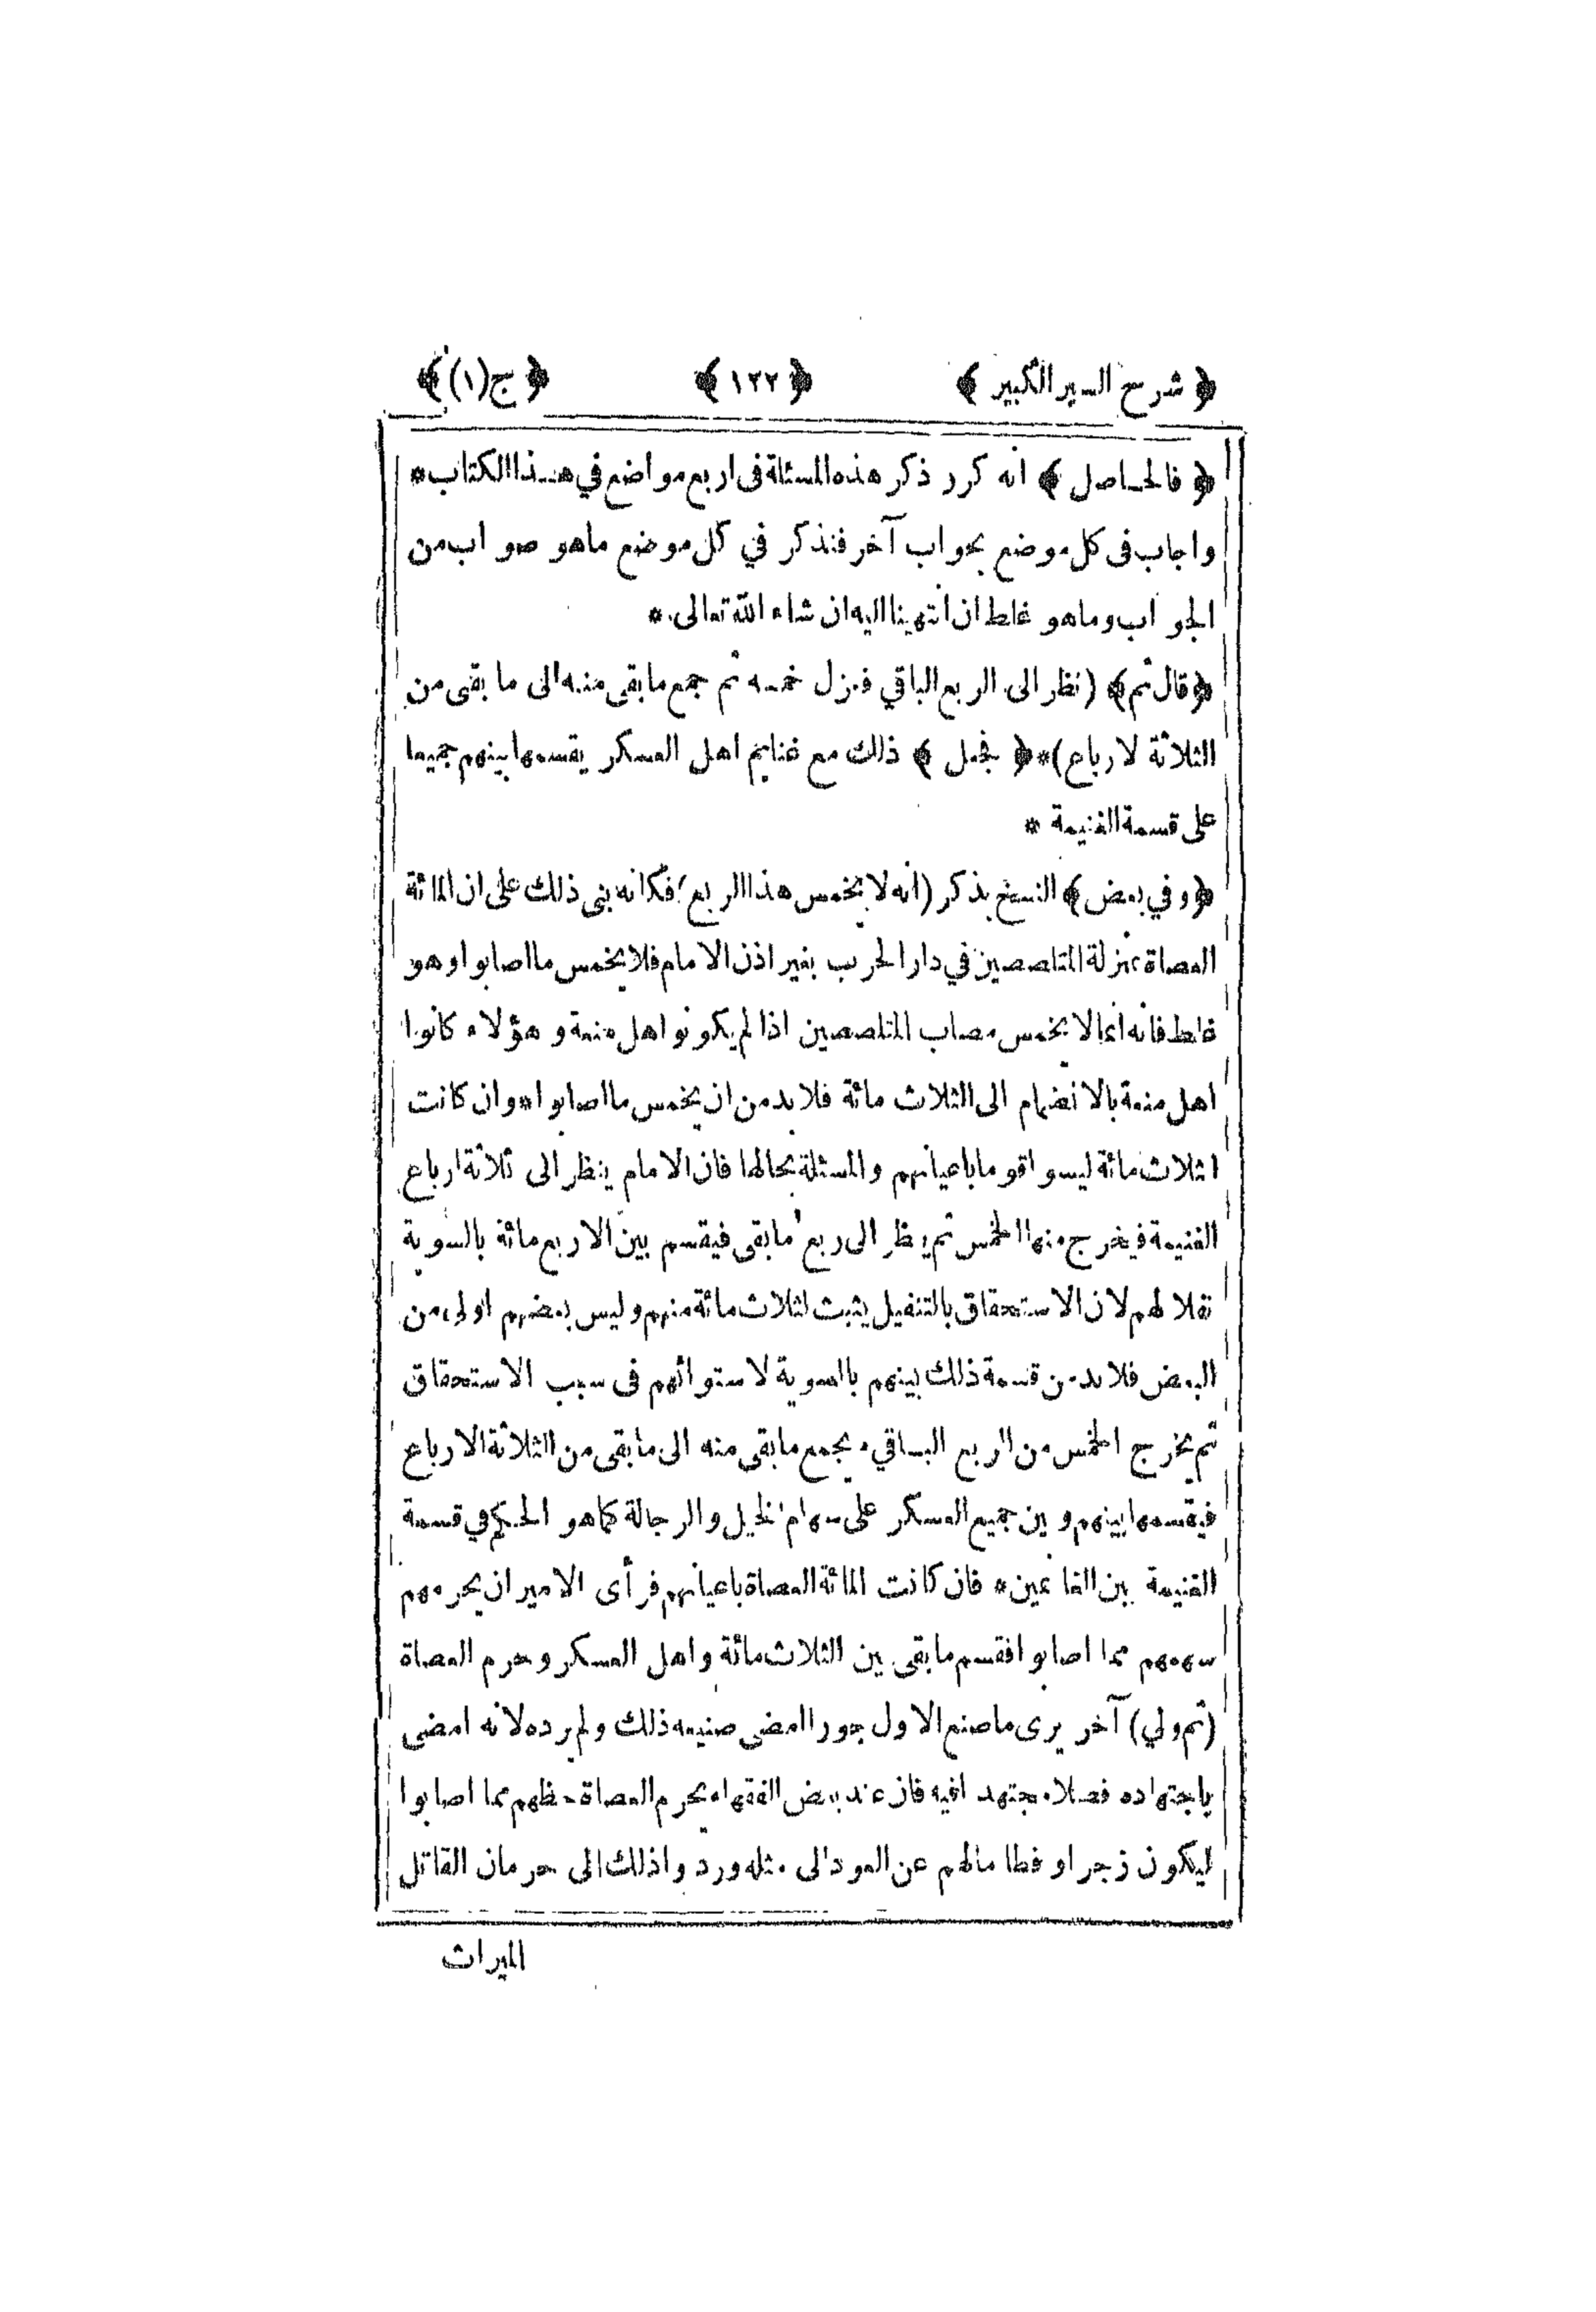 ﴿ شرح السير الكبير ﴾ ﴿ ١٢٢ ﴾ ﴿ ج(١) ﴾
﴿ فالحاصل ﴾ انه كرر ذكر هذه المسئلة فى اربع مواضع في هذا الكتاب *
واجاب فى كل موضع بجواب آخر فنذكر في كل موضع ماهو صواب من
الجواب وماهو غلط ان انتهينا اليه ان شاء الله تعالى *
﴿ قال ثم ﴾ (نظر الى الربع الباقي فعزل خمسه ثم جمع مابقى منه الى ما بقى من
الثلاثة لارباع) * ﴿ فجعل ﴾ ذلك مع غنايم اهل العسكر يقسمها بينهم جميعا
على قسمة الغنيمة *
﴿ وفي بعض ﴾ النسخ يذكر (انه لا يخمس هذا الربع) فكانه بنى ذلك على ان المائة
العصاة بمنزلة المتلصصين في دار الحرب بغير اذن الامام فلا يخمس ما اصابوا وهو
غلط فانه انما لا يخمس مصاب المتلصصين اذا لم يكونوا اهل منعة و هؤلاء كانوا
اهل منعة بالانضمام الى الثلاث مائة فلا بد من ان يخمس ما اصابوا * وان كانت
اثلاث مائة ليسوا قوما باعيانهم والمسئلة بحالها فان الامام ينظر الى ثلاثة ارباع
الغنيمة فيخرج منها الخمس ثم ينظر الى ربع مابقى فيقسم بين الاربع مائة بالسوية
نفلا لهم لان الاستحقاق بالتنفيل يثبت لثلاث مائة منهم وليس بعضهم اولى من
البعض فلا بد من قسمة ذلك بينهم بالسوية لاستوائهم فى سبب الاستحقاق
ثم يخرج الخمس من الربع الباقي و يجمع مابقى منه الى مابقى من الثلاثة الارباع
فيقسمها بينهم و بين جميع العسكر على سهام الخيل والرجالة كماهو الحكم في قسمة
الغنيمة بين الغانمين * فان كانت المائة العصاة باعيانهم فرأى الامير ان يحرمهم
سهمهم مما اصابوا فقسم مابقى بين الثلاث مائة واهل العسكر وحرم العصاة
(ثم ولي) آخر يرى ماصنع الاول جورا امضى صنيعه ذلك ولم يرده لانه امضى
باجتهاده فصلا مجتهدا فيه فان عند بعض الفقهاء يحرم العصاة حظهم مما اصابوا
ليكون زجرا و فطاما لهم عن العود الى مثله وردوا ذلك الى حرمان القاتل
الميراث